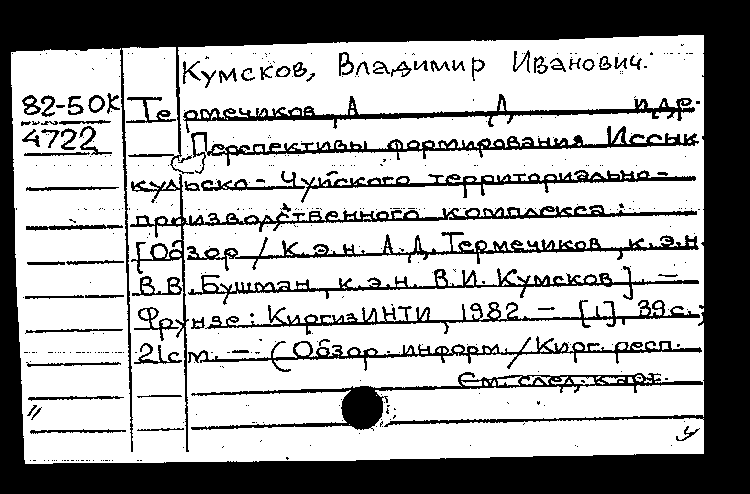 Кумсков, Владимир Иванович.
82-5 ОК Термечиков, А Д и др.
4722 Перспективы формирования Иссык-
кульско-Чуйского территориально-
производственного комплекса :
[Обзор / К.э.н. А.Д. Термечиков, к.э.н.
В.В. Бушман, к.э.н. В.И. Кумсков]. —
Фрунзе : КиргизИНТИ, 1982. — [1], 39 с. ;
21 см. — (Обзор. информ. / Кирг. респ.
См. след. карт.